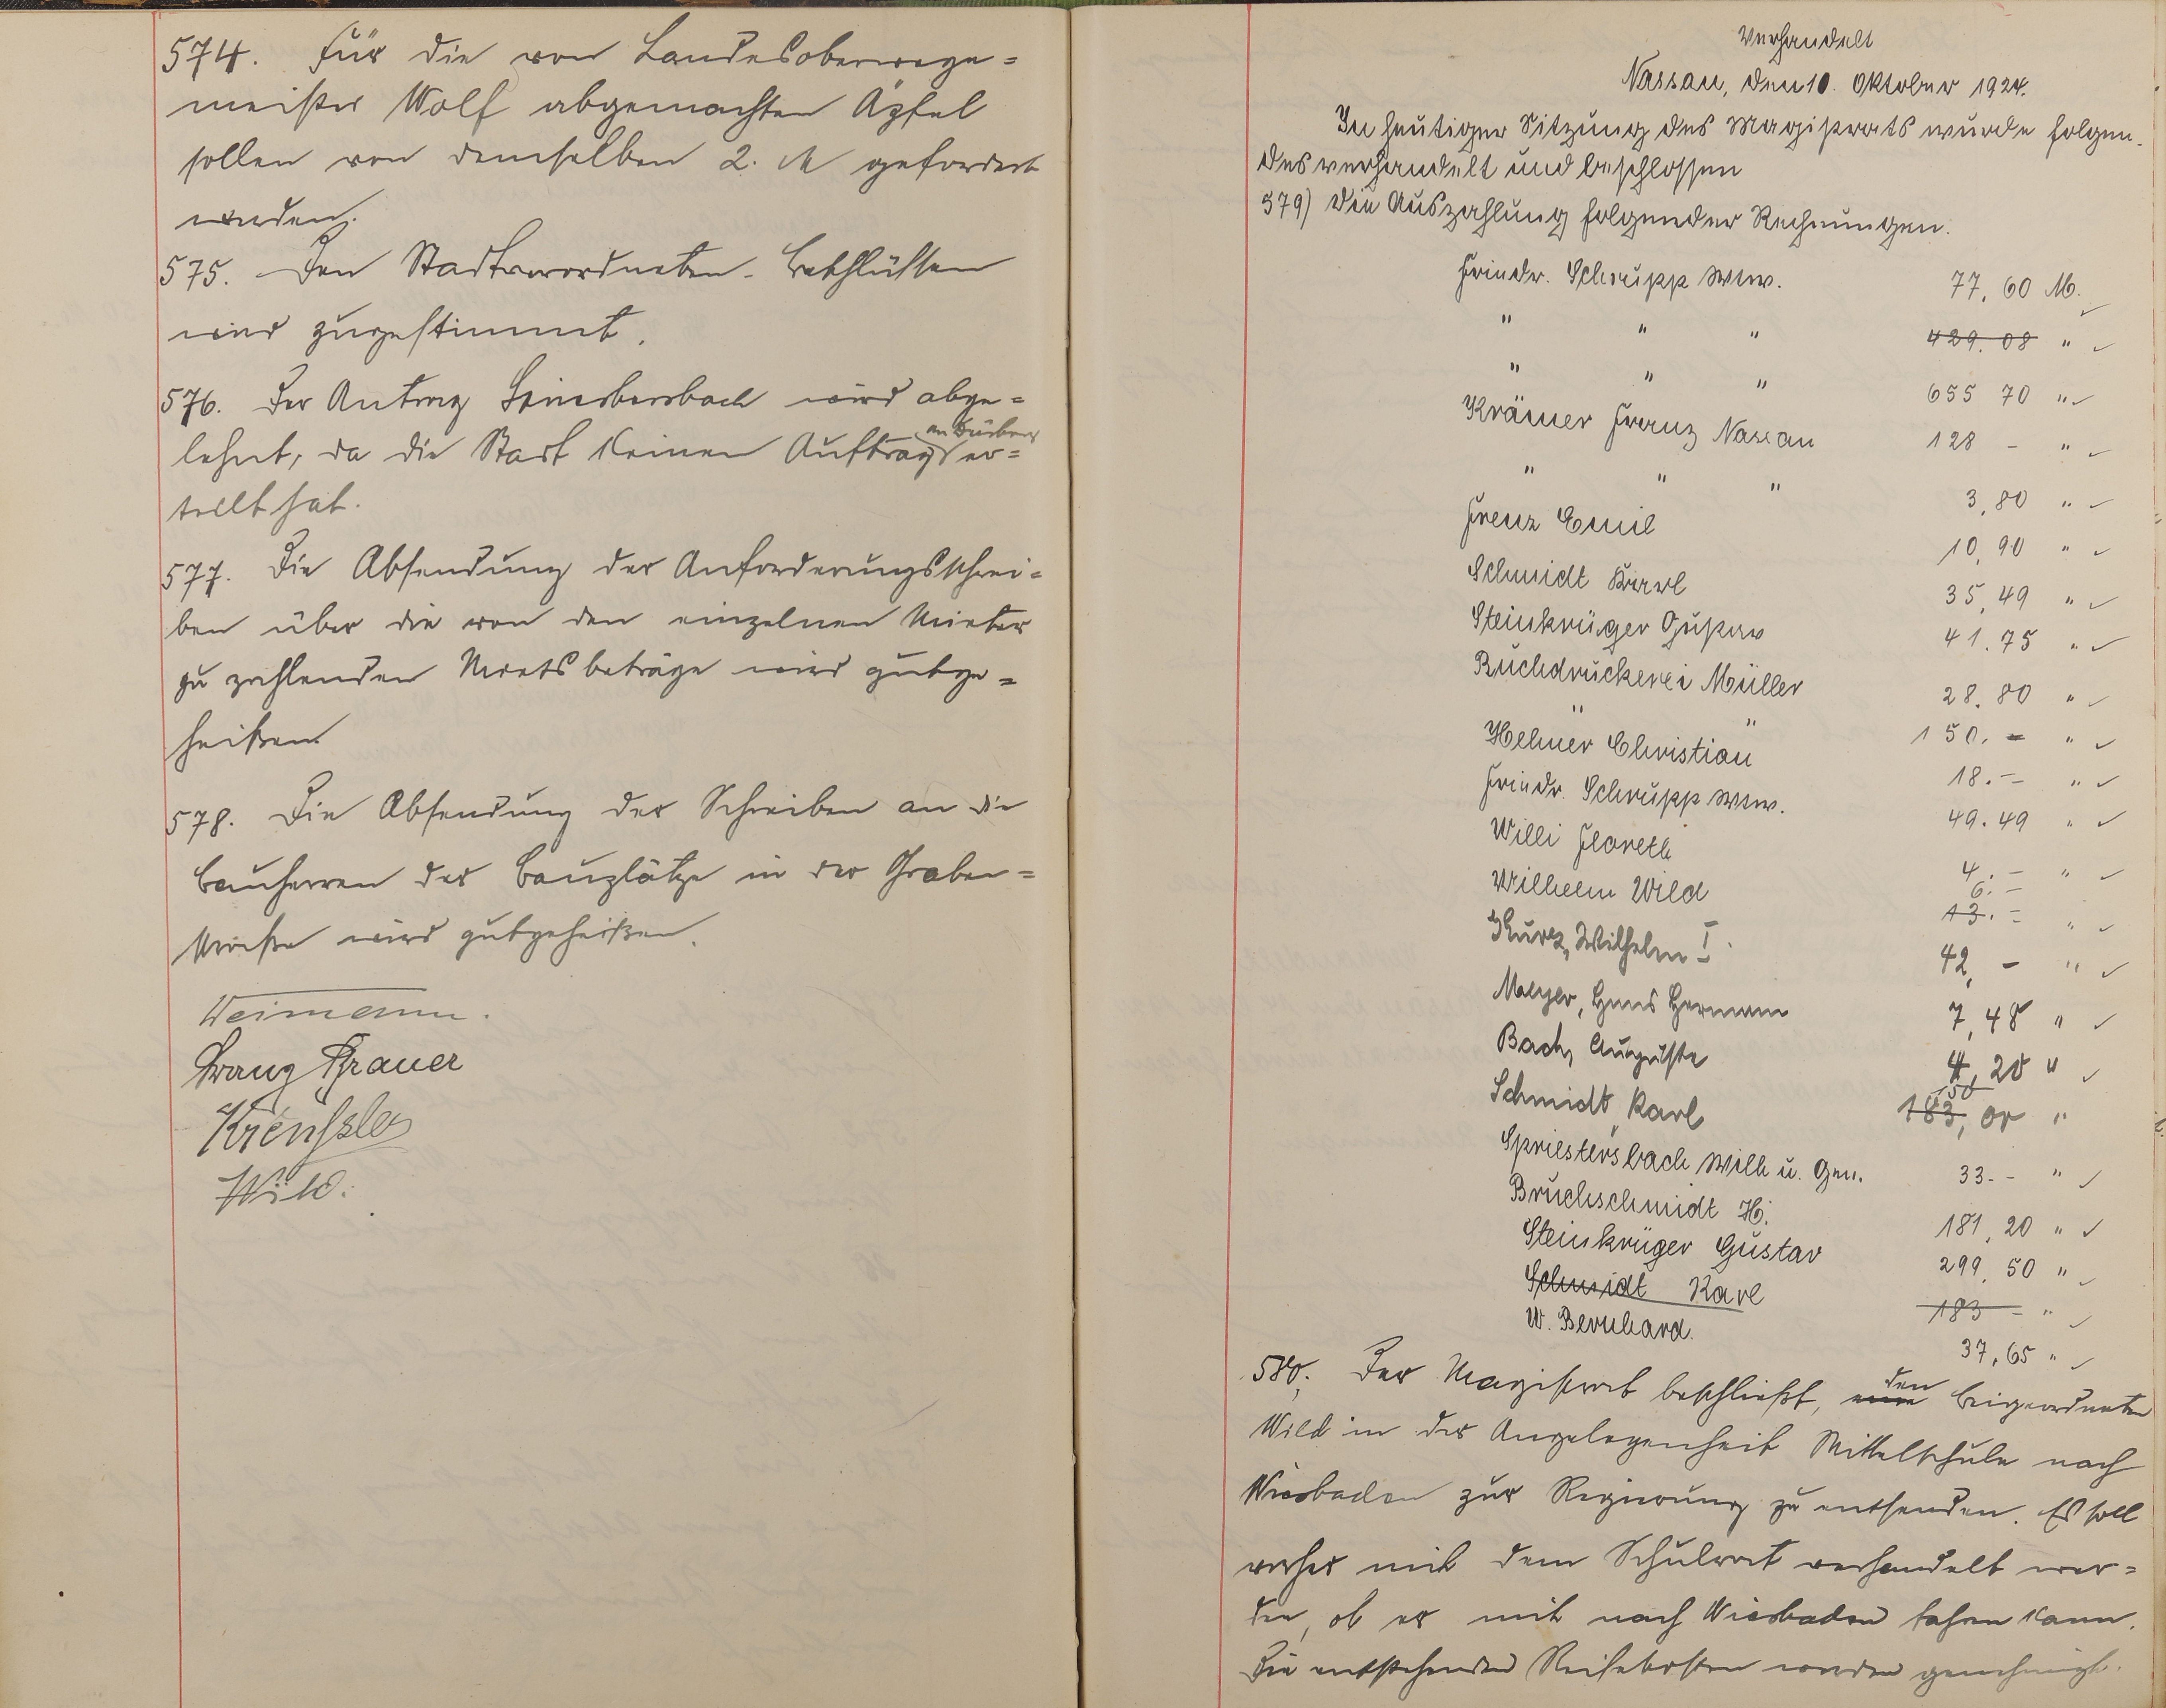 574. Für die von Landesoberwege=
meister Wolf abgemachten Äpfel
sollen von demselben 2. M gefordert
werden.
575. Den Stadtverordneten-Beschlüssen
wird zugestimmt.
576. Der Antrag Spriestersbach wird abge=
lehnt, da die Stadt keinen Auftrag an Dürbeck er=
teilt hat.
577. Die Absendung der Anforderungsschrei=
ben über die von den einzelnen Mieter
zu zahlenden Mietsbeträge wird gutge=
heißen.
578. Die Absendung der Schreiben an die
Bauherren der Bauplätze in der Graben=
straße wird gutgeheißen.
Weimann.
Franz Brauer
Wild.
Verhandelt
Nassau, den 10. Oktober 1924.
In heutiger Sitzung des Magistrats wurde folgen-
des verhandelt und beschlossen
579) Die Auszahlung folgender Rechnungen.
Friedr. Schrupp Wtw. 77,60 M.
" " " 429.08 "
" " " 655 70 "
Krämer Franz Nassau 128 - "
" " " 3,80 "
Frenz Emil 10,90 "
Schmidt Karl 35,49 "
Steinkrüger Gustav 41.75 "
Buchdruckerei Müller 28.80 "
" " 150.- "
Hehner Christian 18.- "
Friedr. Schrupp Wtw. 49.49 "
Willi Floreth 4.- "
Wilhelm Wild 13.- 6.- "
Kurz, Wilhelm I. 42,- "
Meyer, Hans Hermann 7,48 "
Bach, Auguste 4,20 "
Schmidt, Karl 183, 150 "
Spriestersbach Wilh u. Gen. 33.- "
Bruchschmidt H. 181,20 "
Steinkrüger Gustav 299,50 "
Schmidt Karl 183 - "
W. Bernhard. 37,65 "
580. Der Magistrat beschließt, den Beigeordneten
Wild in der Angelegenheit Mittelschule nach
Wiesbaden zur Regierung zu entsenden. Es soll
vorher mit dem Schulrat verhandelt wer=
den, ob er mit nach Wiesbaden fahren kann.
Die entstehenden Reisekosten werden genehmigt.